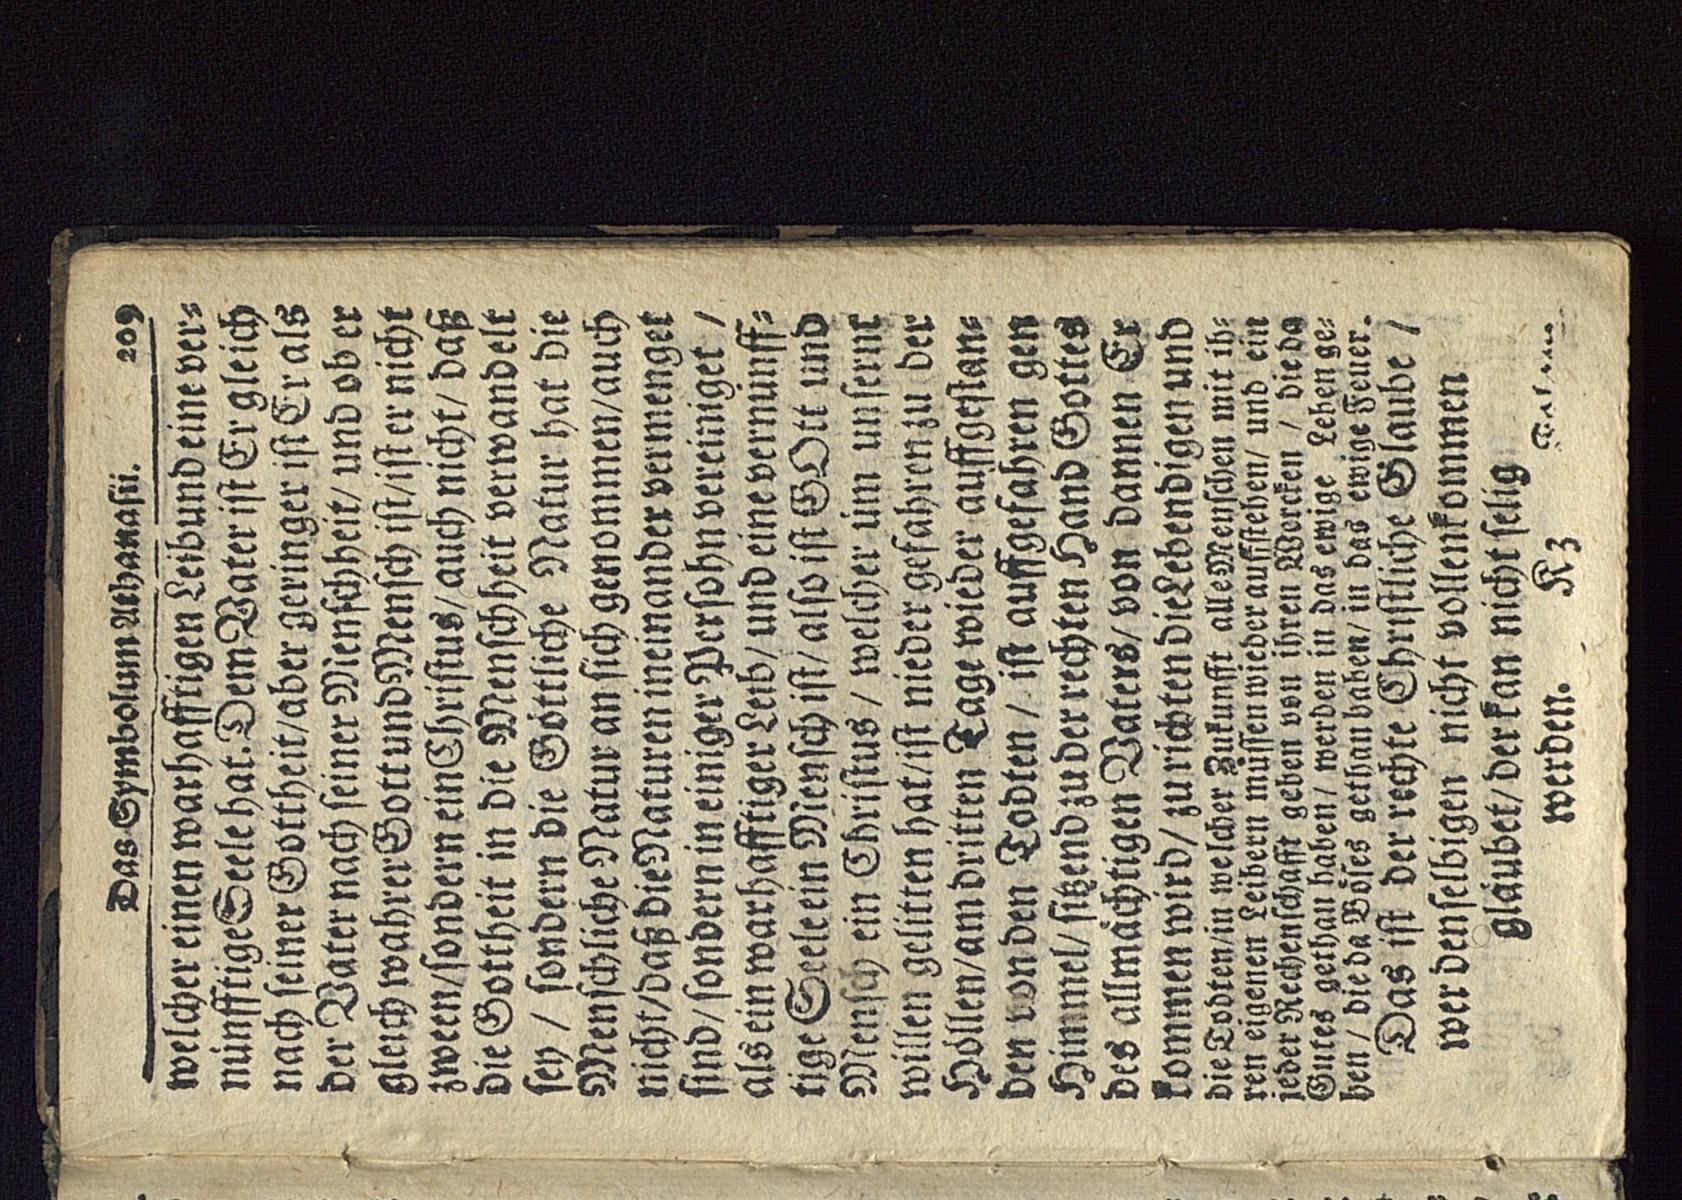 Das Symbolum Athanasii. 209
welcher einen warhafftigen Leib und eine ver-
nünfftige Seele hat. Dem Vater ist Er gleich
nach seiner Gottheit/ aber geringer ist Er als
der Vater nach seiner Menschheit/ und ob er
gleich wahrer Gott und Mensch ist/ ist er nicht
zween/ sondern ein Christus/ auch nicht/ daß
die Gottheit in die Menschheit verwandelt
sey / sondern die Göttliche Natur hat die
Menschliche Natur an sich genommen/ auch
nicht/ daß die Naturen in einander vermenget
sind/ sondern in einiger Persohn vereiniget /
als ein warhafftiger Leib/ und eine vernünff-
tige Seele ein Mensch ist/ also ist GOtt und
Mensch ein Christus / welcher üm unsernt
willen gelitten hat/ ist nieder gefahren zu der
Höllen/ am dritten Tage wieder auffgestan-
den von den Todten / ist auffgefahren gen
Himmel/ sitzend zu der rechten Hand Gottes
des allmächtigen Vaters/ von dannen Er
kommen wird/ zu richten die Lebendigen und
die Todten/ in welcher Zukunfft alle Menschen mit ih-
ren eigenen Leibern müssen wieder auffstehen/ und ein
jeder Rechenschafft geben von ihren Wercken / die da
Gutes gethan haben/ werden in das ewige Leben ge-
hen / die da Böses gethan haben/ in das ewige Feuer.
Das ist der rechte Christliche Glaube /
wer denselbigen nicht vollenkommen
gläubet/ der kan nicht selig
werden. K 3